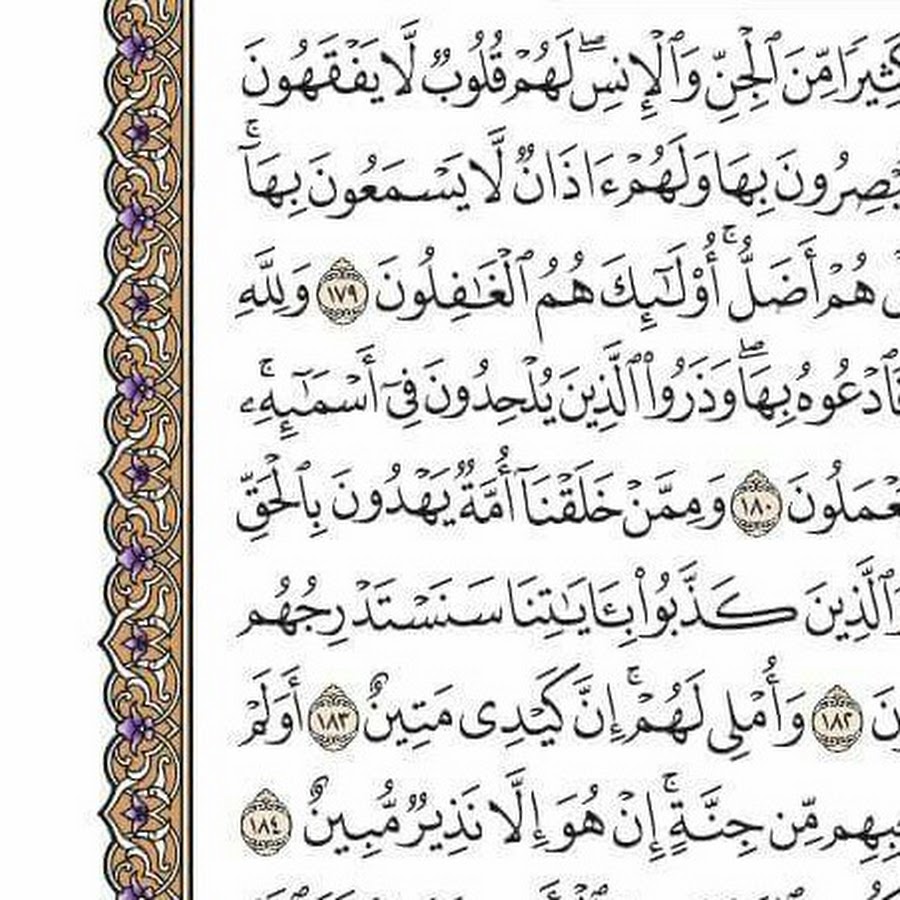 كَثِيرًا مِّنَ ٱلْجِنِّ وَٱلْإِنسِۖ لَهُمْ قُلُوبٌ لَّا يَفْقَهُونَ
يُبْصِرُونَ بِهَا وَلَهُمْ ءَاذَانٌ لَّا يَسْمَعُونَ بِهَآۚ
هُمْ أَضَلُّۚ أُو۟لَٰٓئِكَ هُمُ ٱلْغَٰفِلُونَ ١٧٩ وَلِلَّهِ
فَٱدْعُوهُ بِهَاۖ وَذَرُوا۟ ٱلَّذِينَ يُلْحِدُونَ فِىٓ أَسْمَٰٓئِهِۦۚ
يَعْمَلُونَ ١٨٠ وَمِمَّنْ خَلَقْنَآ أُمَّةٌ يَهْدُونَ بِٱلْحَقِّ
وَٱلَّذِينَ كَذَّبُوا۟ بِـَٔايَٰتِنَا سَنَسْتَدْرِجُهُم
نَ ١٨٢ وَأُمْلِى لَهُمْۚ إِنَّ كَيْدِى مَتِينٌ ١٨٣ أَوَلَمْ
حِبِهِم مِّن جِنَّةٍۚ إِنْ هُوَ إِلَّا نَذِيرٌ مُّبِينٌ ١٨٤